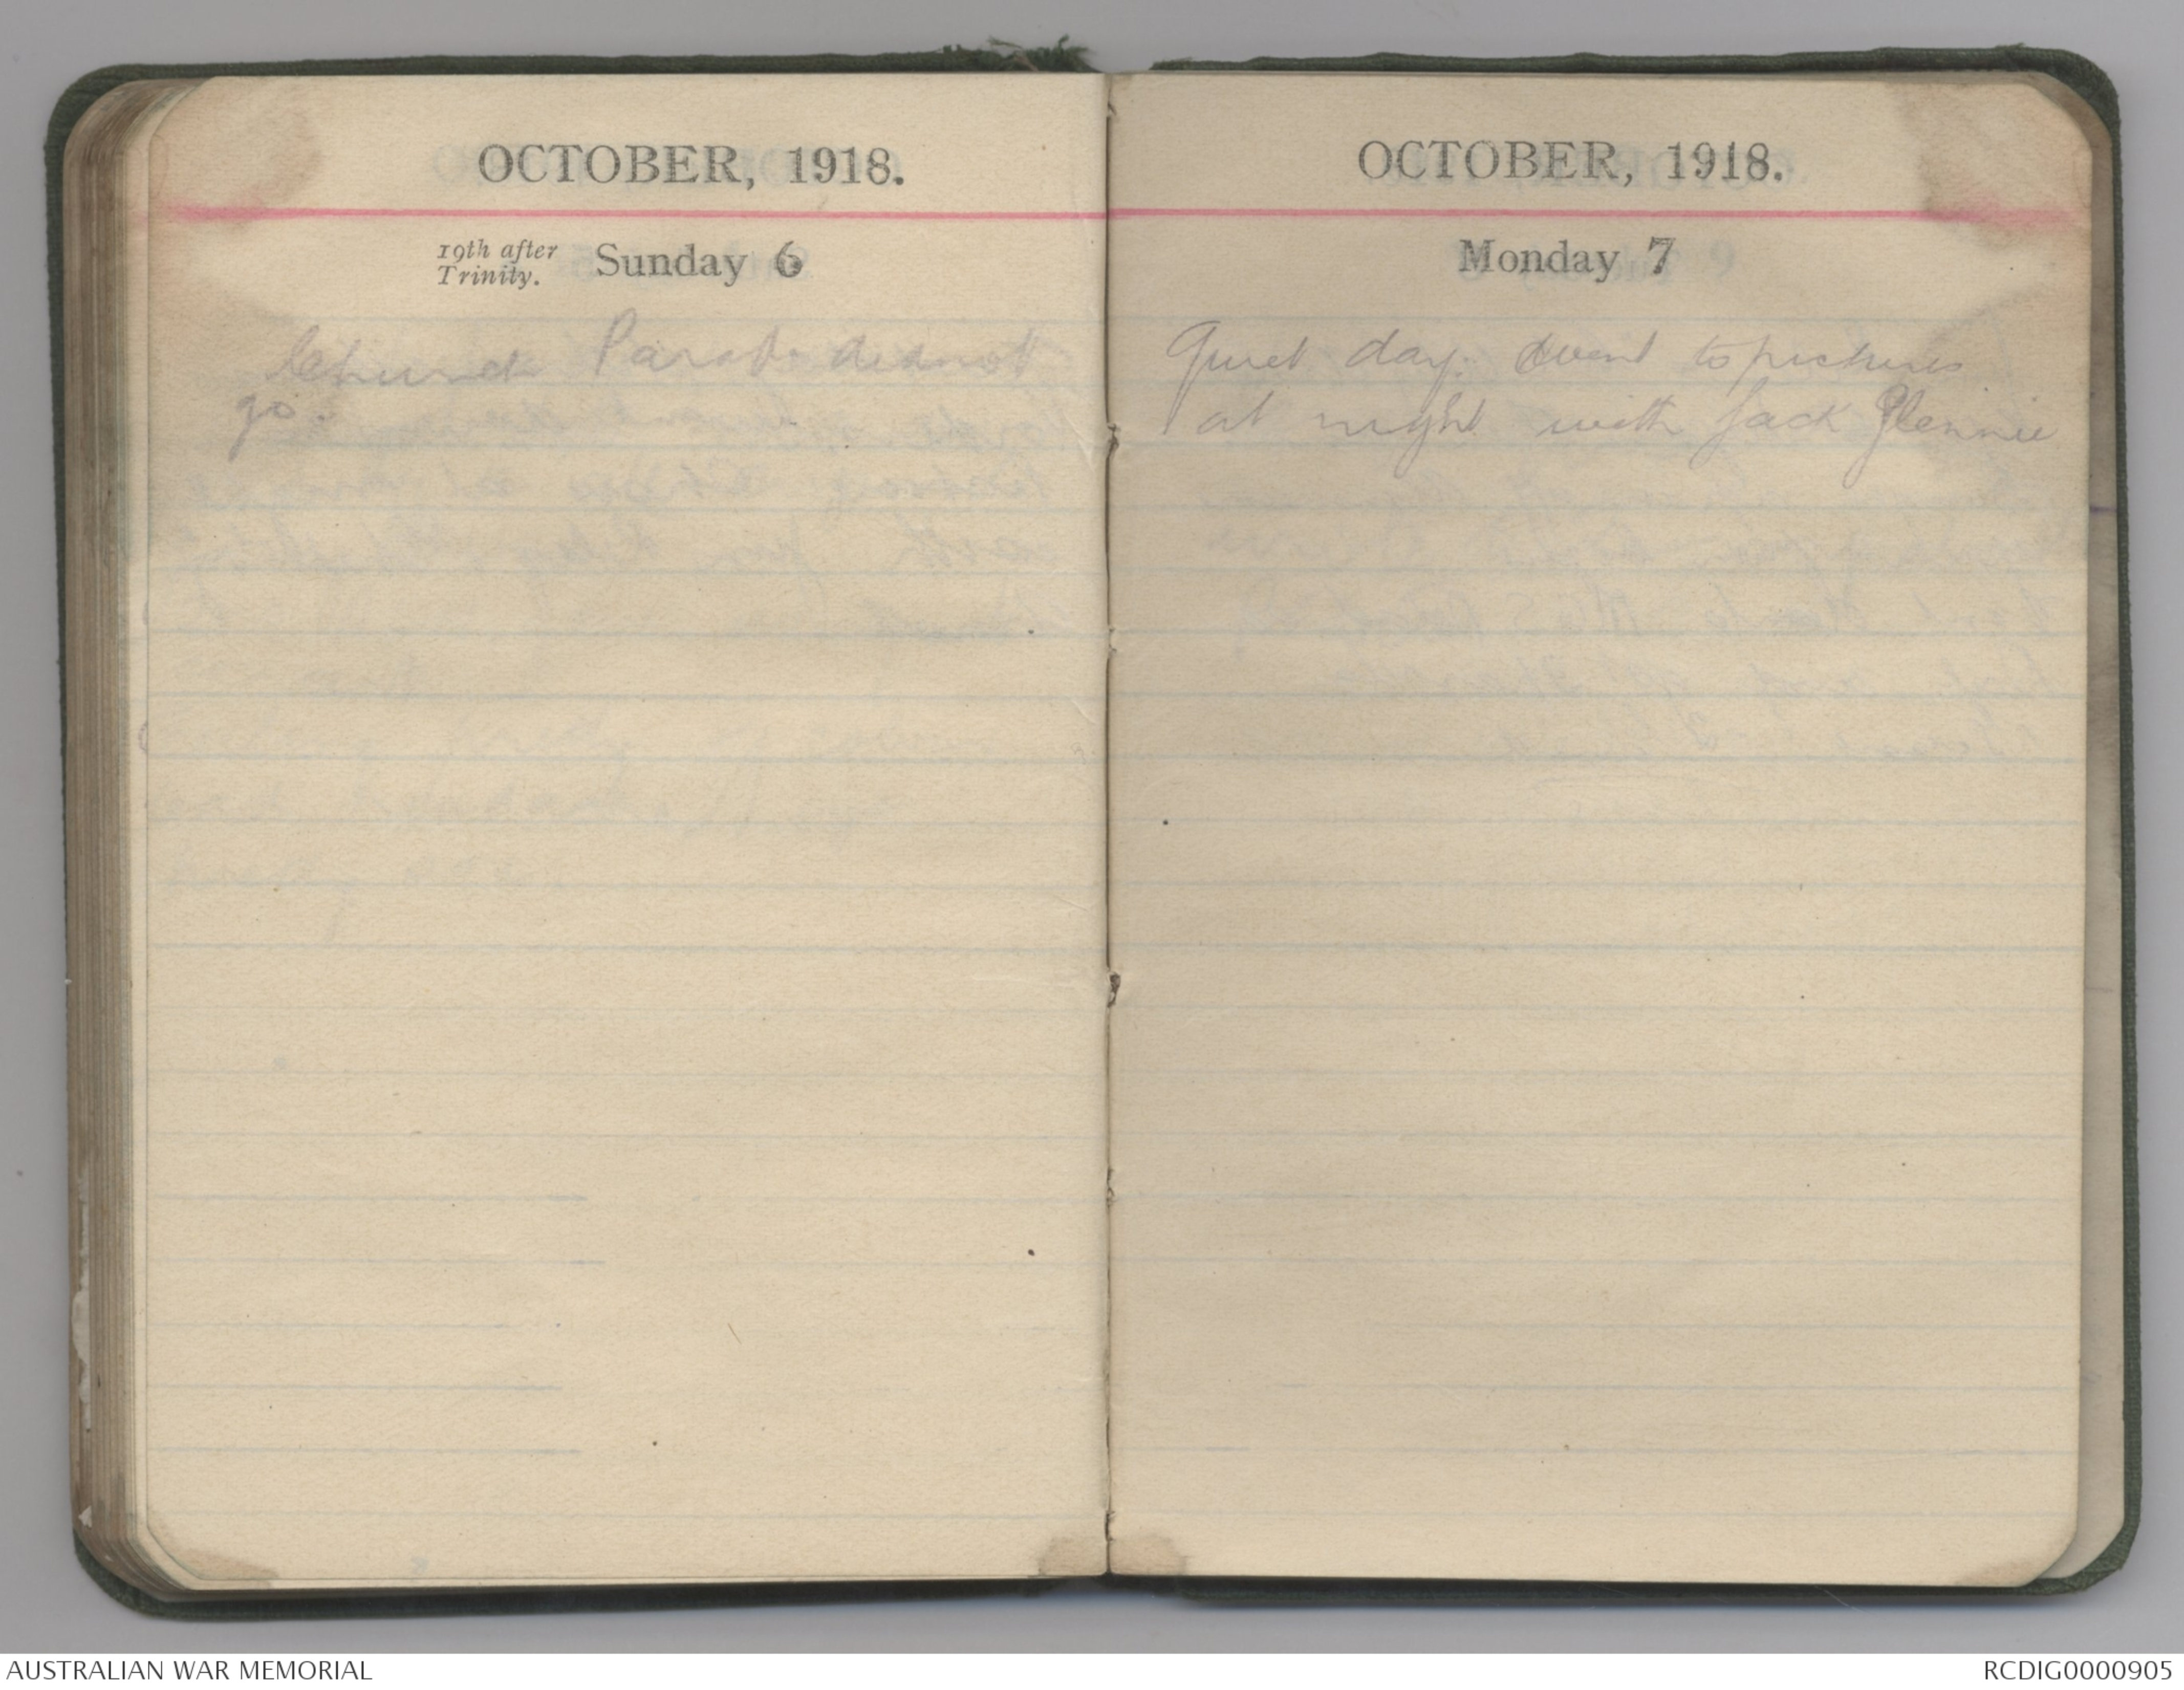 OCTOBER, 1918.
19th after Trinity. Sunday 6
Church Parade did not
go.
OCTOBER, 1918.
Monday 7
Quiet day. Went to pictures
at night with Jack Glennie
AUSTRALIAN WAR MEMORIAL
RCDIG0000905